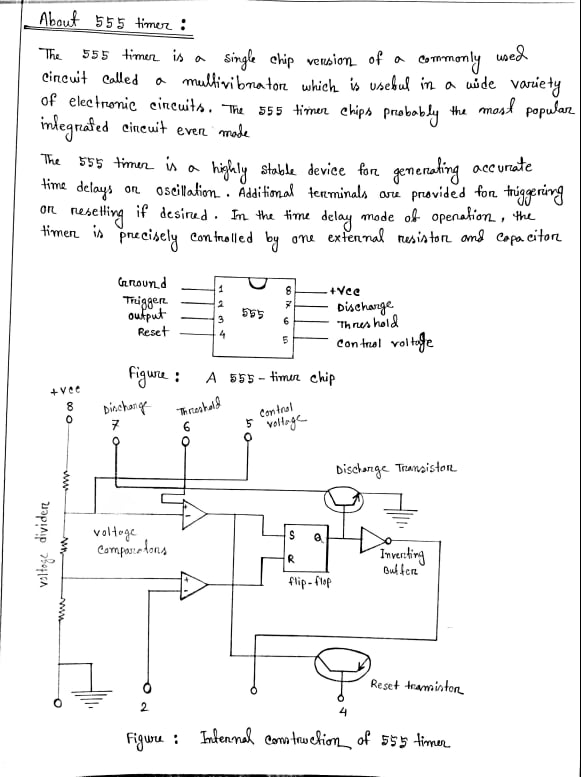 About 555 timer :
The 555 timer is a single chip version of a commonly used
circuit called a multivibrator which is useful in a wide variety
of electronic circuits. The 555 timer chips probably the most popular
integrated circuit ever made
The 555 timer is a highly stable device for generating accurate
time delays or oscillation. Additional terminals are provided for triggering
or resetting if desired. In the time delay mode of operation, the
timer is precisely controlled by one external resistor and capacitor
Ground 1 8 +Vcc
Trigger 2 7 Discharge
output 3 555 6 Threshold
Reset 4 5 control voltage
Figure : A 555-timer chip
+Vcc
8
Discharge
7
Threshold
6
control
5 voltage
Discharge Transistor
voltage divider
voltage
comparators
+
-
+
-
S Q
R
flip-flop
Inverting
Buffer
Reset transistor
2
4
Figure : Internal construction of 555 timer